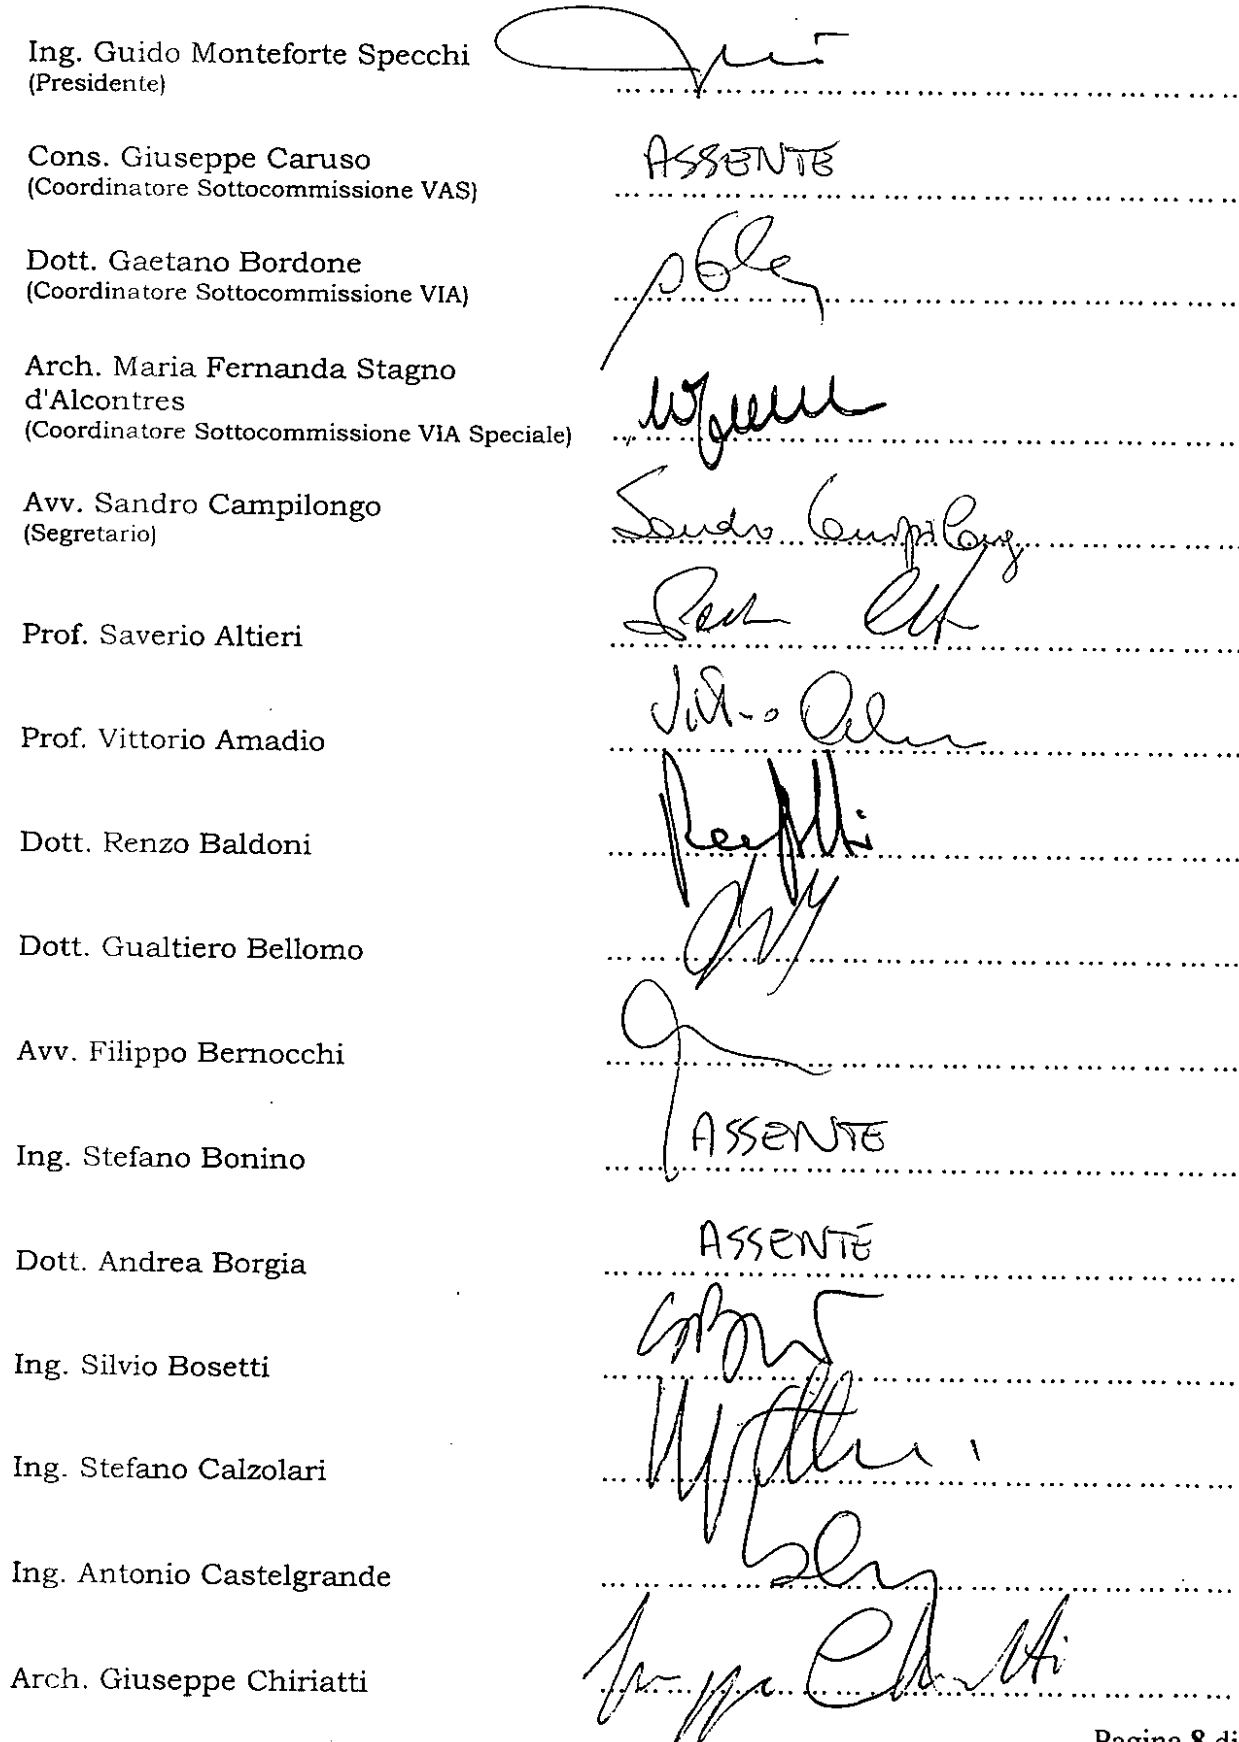 Ing. Guido Monteforte Specchi
(Presidente)
Cons. Giuseppe Caruso
(Coordinatore Sottocommissione VAS)
ASSENTE
Dott. Gaetano Bordone
(Coordinatore Sottocommissione VIA)
Arch. Maria Fernanda Stagno
d'Alcontres
(Coordinatore Sottocommissione VIA Speciale)
Avv. Sandro Campilongo
(Segretario)
Sandro Campilong
Prof. Saverio Altieri
Prof. Vittorio Amadio
Dott. Renzo Baldoni
Dott. Gualtiero Bellomo
Avv. Filippo Bernocchi
Ing. Stefano Bonino
ASSENTE
Dott. Andrea Borgia
ASSENTE
Ing. Silvio Bosetti
Ing. Stefano Calzolari
Ing. Antonio Castelgrande
Arch. Giuseppe Chiriatti
Pagina 8 di